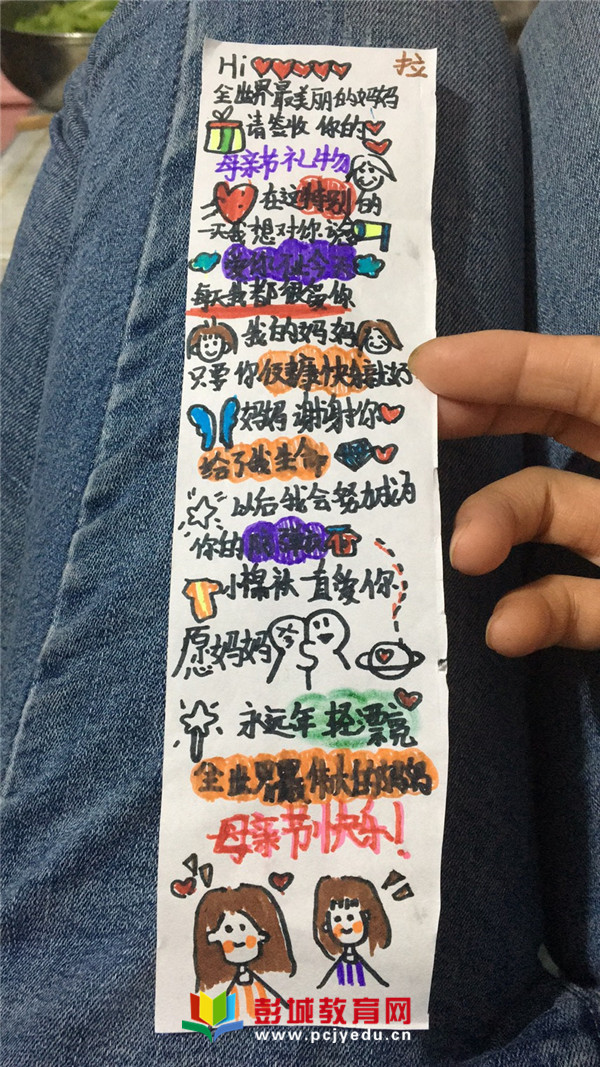 Hi
拉
全世界最美丽的妈妈
请签收 你的
母亲节礼物
在这特别的
一天我想对你说
爱你不止今天
每天我都很爱你
我的妈妈
只要你健康快乐就好
妈妈 谢谢你
给了我生命
以后我会努力成为
你的防弹
小棉袄 直爱你
愿妈妈
永远年轻漂亮
全世界最伟大的妈妈
母亲节快乐!
彭城教育网
www.pcjyedu.cn